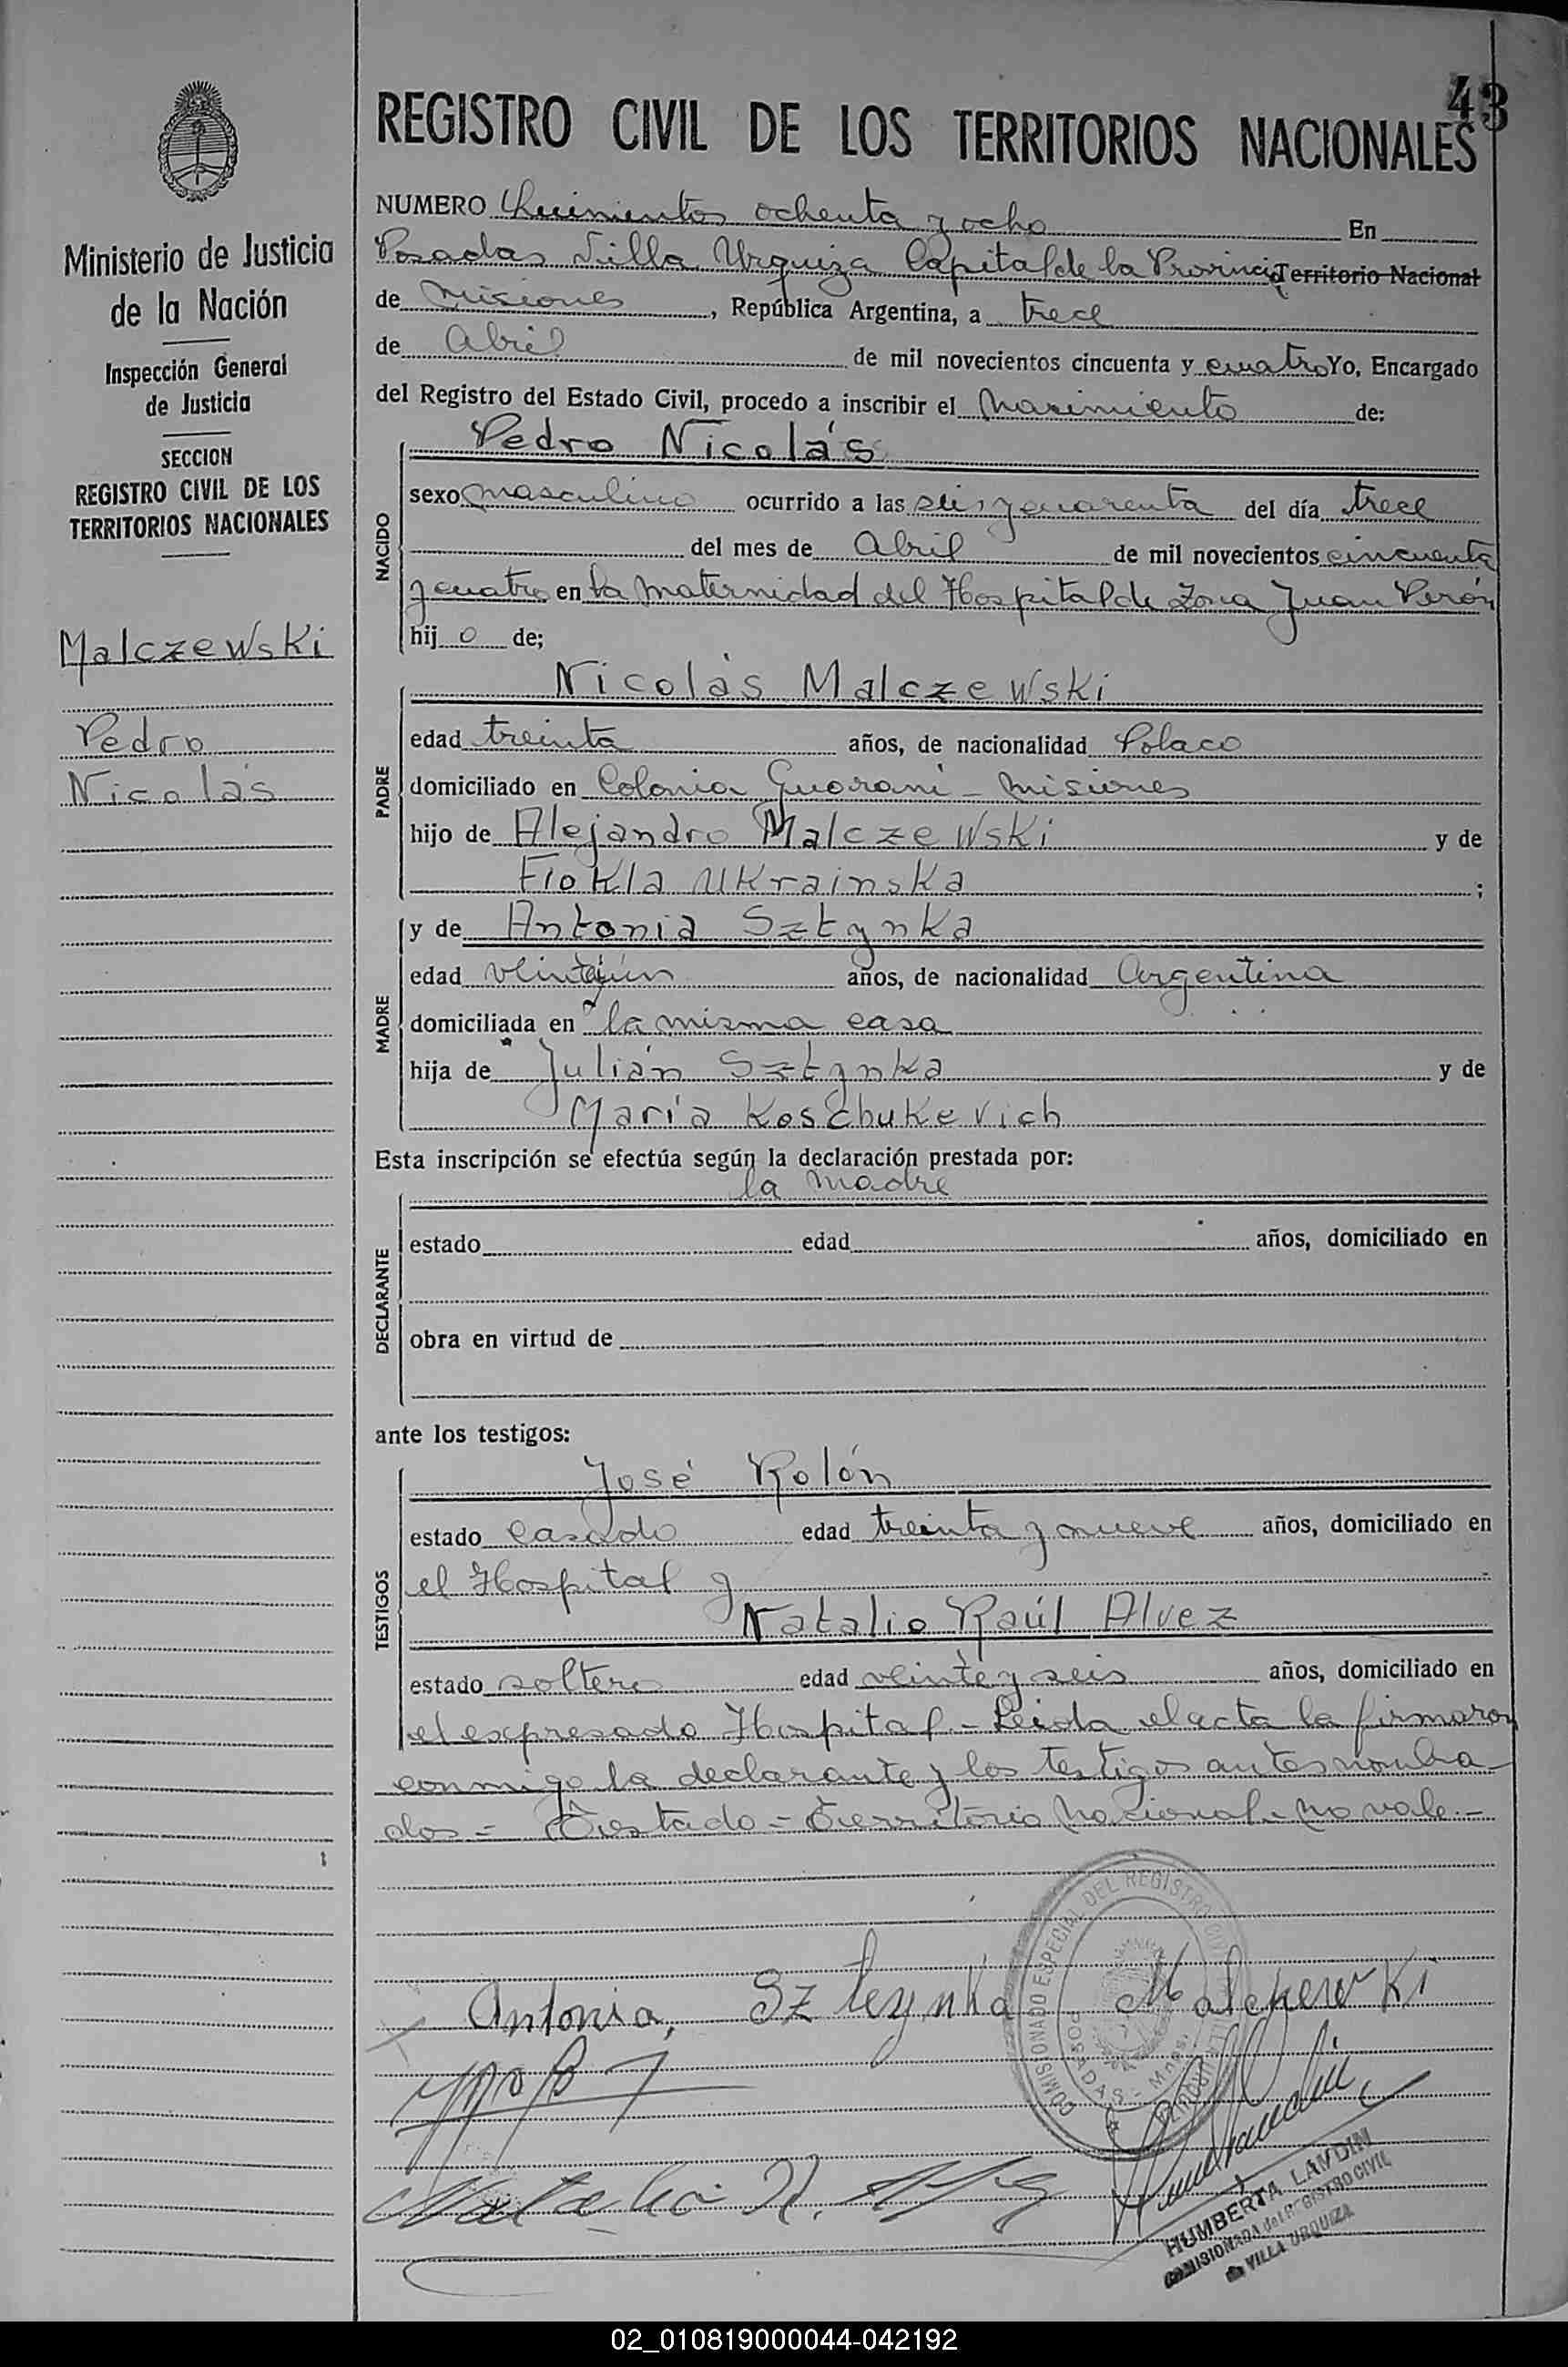 43
REGISTRO CIVIL DE LOS TERRITORIOS NACIONALES
Ministerio de Justicia
de la Nación
Inspección General
de Justicia
SECCION
REGISTRO CIVIL DE LOS
TERRITORIOS NACIONALES
Malczewski
Pedro
Nicolás
NUMERO Quinientos ochenta y ocho En
Posadas Villa Urquiza Capital de la Provincia Territorio Nacional
de Misiones, República Argentina, a trece
de Abril de mil novecientos cincuenta y cuatro Yo, Encargado
del Registro del Estado Civil, procedo a inscribir el Nacimiento de:
NACIDO
Pedro Nicolás
sexo masculino ocurrido a las seis y cuarenta del día trece
del mes de Abril de mil novecientos cincuenta
y cuatro en la Maternidad del Hospital de Zona Juan Perón
hijo de;
PADRE
Nicolás Malczewski
edad treinta años, de nacionalidad Polaco
domiciliado en Colonia Guaraní - Misiones
hijo de Alejandro Malczewski y de
Fiokla Ukrainska;
MADRE
y de Antonia Sztynka
edad veintiún años, de nacionalidad Argentina
domiciliada en la misma casa
hija de Julián Sztynka y de
María Koschukevich
Esta inscripción se efectúa según la declaración prestada por:
la Madre
DECLARANTE
estado edad años, domiciliado en
obra en virtud de
ante los testigos:
TESTIGOS
José Rolón
estado casado edad treinta y nueve años, domiciliado en
el Hospital y
Natalio Raúl Alvez
estado soltero edad veinte y seis años, domiciliado en
el expresado Hospital - Leida el acta la firmaron
conmigo la declarante y los testigos antes nombra-
dos = Testado = Territorio Nacional - No vale.-
COMISIONADO ESPECIAL DEL REGISTRO CIVIL
POSADAS - Mnes.
Antonia, Szteynka Malchewski
Natalio R. Alvez
HUMBERTA LANDIN
COMISIONADA del REGISTRO CIVIL
de VILLA URQUIZA
02_010819000044-042192